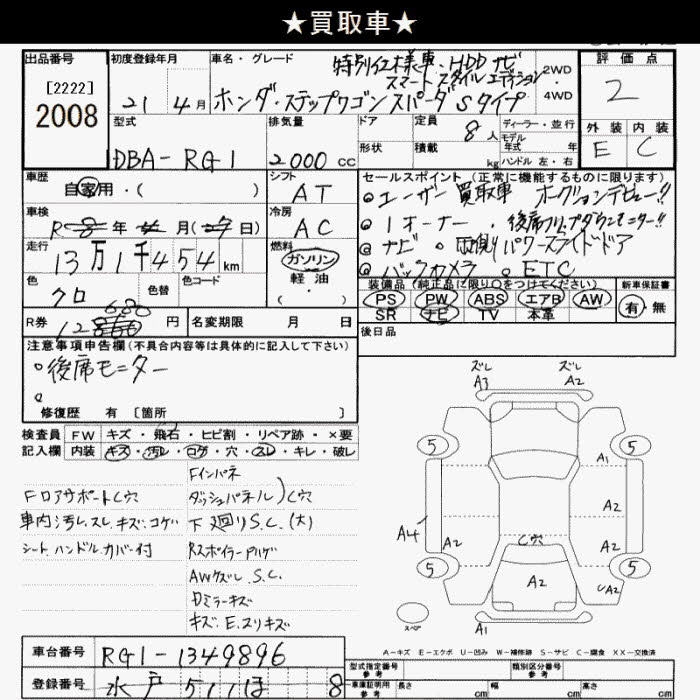 ★買取車★
出品番号 初度登録年月 車名・グレード 特別仕様車・HDDナビ 評価点
スマートスタイルエディション 2WD
[2222] 21 4月 ホンダ・ステップワゴンスパーダSタイプ 4WD 2
2008
型式 排気量 ドア 定員 8人 ディーラー・並行 外装 内装
モデル年式 年
DBA-RG1 2000cc 形状 積載 kg ハンドル 左・右 E C
車歴 自家用・( ) シフト AT セールスポイント(正常に機能するものに限ります)
ユーザー買取車 オークションデビュー!!
車検 R8年4月( 日) 冷房 AC 1オーナー・後席フリップダウンモニター!!
走行 13万1千454km 燃料 ガソリン ナビ 両側パワースライドドア
軽油 バックカメラ ETC
色 クロ 色替 色コード (・) 装備品(純正品に限り○をつけてください) 新車保証書
PS PW ABS エアB AW 有・無
SR ナビ TV 本革
R券 12,860 680円 名変期限 月 日 後日品
注意事項申告欄(不具合内容等は具体的に記入して下さい)
後席モニター
修復歴 有 [箇所 ]
検査員 FW キズ・飛石・ヒビ割・リペア跡・×要
記入欄 内装 キズ・汚レ・コゲ・穴・スレ・キレ・破レ
Fインパネ
Fロアサポート C穴 ダッシュパネル)C穴
車内汚レ、スレ、キズ、コゲ 下廻りS.C.(大)
シート、ハンドルカバー付 Rスポイラーハゲ
AWケズレ.S.C.
Dミラーキズ
キズ.E.スリキズ
ズレ ズレ
A3 A2
5 5
A1
A2
A4 A2 C穴 A2
5 5
A2 UA2
スペア
A1
A-キズ E-エクボ U-凹み W-補修跡 S-サビ C-腐食 XX-交換済
車台番号 RG1-1349896
登録番号 水戸511ほ 8
型式指定番号 参考 類別区分番号 参考
車庫証明用 参考 長さ cm 幅 cm 高さ cm